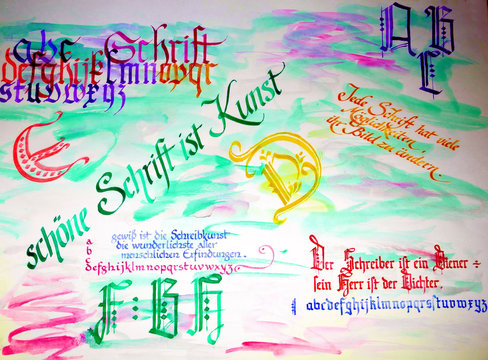 abc Schrift
defghijklmnopqr
stuvwxyz
A B
C
E
schöne Schrift ist Kunst
D
Jede Schrift hat viele
Möglichkeiten,
ihr Bild zu ändern.
gewiß ist die Schreibkunst
die wunderlichste aller
menschlichen Erfindungen.
a
b
c
defghijklmnopqrstuvwxyz
F G H
Der Schreiber ist ein Diener ÷
sein Herr ist der Dichter.
abcdefghijklmnopqrstuvwxyz